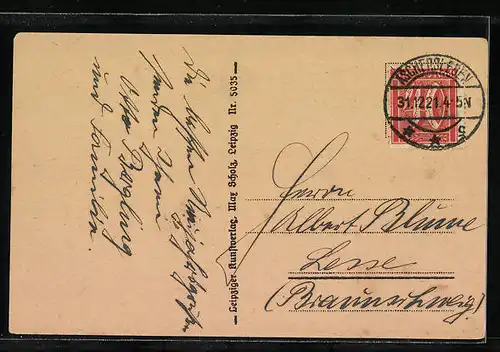 Die besten Neujahrsgrüße
senden Ihnen
Otto
und Familie.
Leipziger Kunstverlag, Max Scholz, Leipzig Nr. 5035
ASCHERSLEBEN
31.12.21.4-5N
* * c
40
Herrn
Albert Blume
Lesse
(Braunschweig)